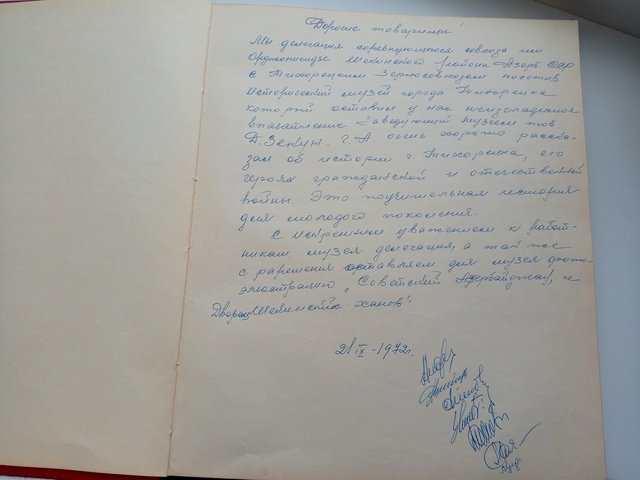 Дорогие товарищи!
Мы делегация соревнующегося совхоза им
Орджоникидзе Шекинского района Азерб ССР
с Тихорецким Зерносовхозом посетив
исторический музей города Тихорецка
который оставил у нас неизгладимое
впечатление. Заведующий музеем тов
г. А очень хорошо расска-
зал об истории г. Тихорецка, его
героях гражданской и отечественной
войны. Это поучительная история
для молодого поколения.
С искренним уважением к работ-
никам музея делегация, а так же
с разрешения оставляем для музея фото-
иллюстрацию „Советский Азербайджан", и
Дворец Шекинских ханов!
21 IX - 1972г.